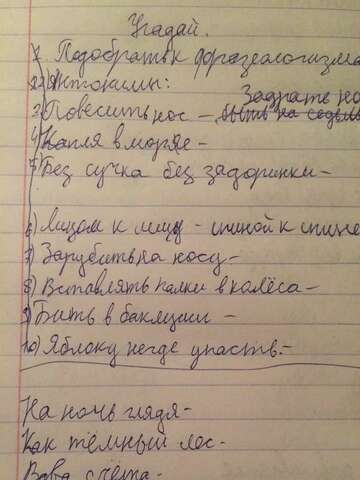 Угадай.
1. Подобрать к фразеологизма
Антонимы:
Задрать но
3) Повесить нос – быть на седьм
4) Капля в море –
5) Без сучка без задоринки –
6) Лицом к лицу – спиной к спине
7) Зарубить на носу –
8) Вставлять палки в колёса –
9) Бить в баклуши –
10) Яблоку негде упасть. –
На ночь глядя –
Как тёмный лес –
счёта –